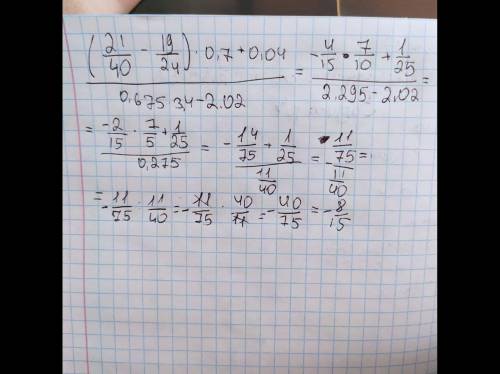 (21/40 - 19/24) · 0,7 + 0,04 / 0,675·3,4-2.02 = -4/15 · 7/10 + 1/25 / 2.295-2.02 =
= -2/15 · 7/5 + 1/25 / 0,275 = -14/75 + 1/25 / 11/40 = -11/75 / 11/40 =
= -11/75 : 11/40 = -11/75 · 40/11 = -40/75 = -8/15